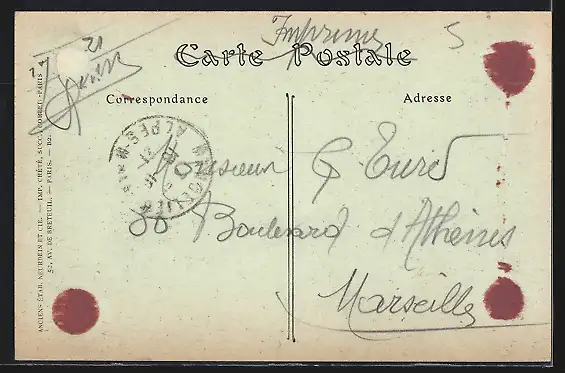 Imprimé
Carte Postale
5
21
Correspondance
Adresse
Monsieur G
30 Boulevard d'Athènes
Marseille
ALPES
ANCIENS ÉTAB. NEURDEIN ET CIE. — IMP. CRÉTÉ, SUCC., CORBEIL-PARIS
52, AV. DE BRETEUIL. — PARIS. — B2.